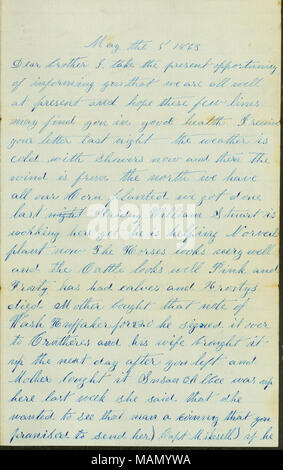 May the 5 1863
Dear brother I take the present opportunity
of informing you that we are all well
at present and hope these few lines
may find you in good health I receive
your letter last night the weather is
cold with showers now and then the
wind is from the north we have
all our Corn planted we got done
last night William Stuart is
working here yet he is helping Norval
plant now The Horses looks very well
and the Cattle looks well Pink and
Frosty has had calves and Frostys
died Mother bought that note of
Wash Huffaker he signed it over
to and his wife brought it
up the next day after you left and
Mother bought it Susan Allee was up
here last week she said that she
wanted to see that man a coming that you
promised to send her) Capt if he
alamy
Image ID: MAMYWA
www.alamy.com